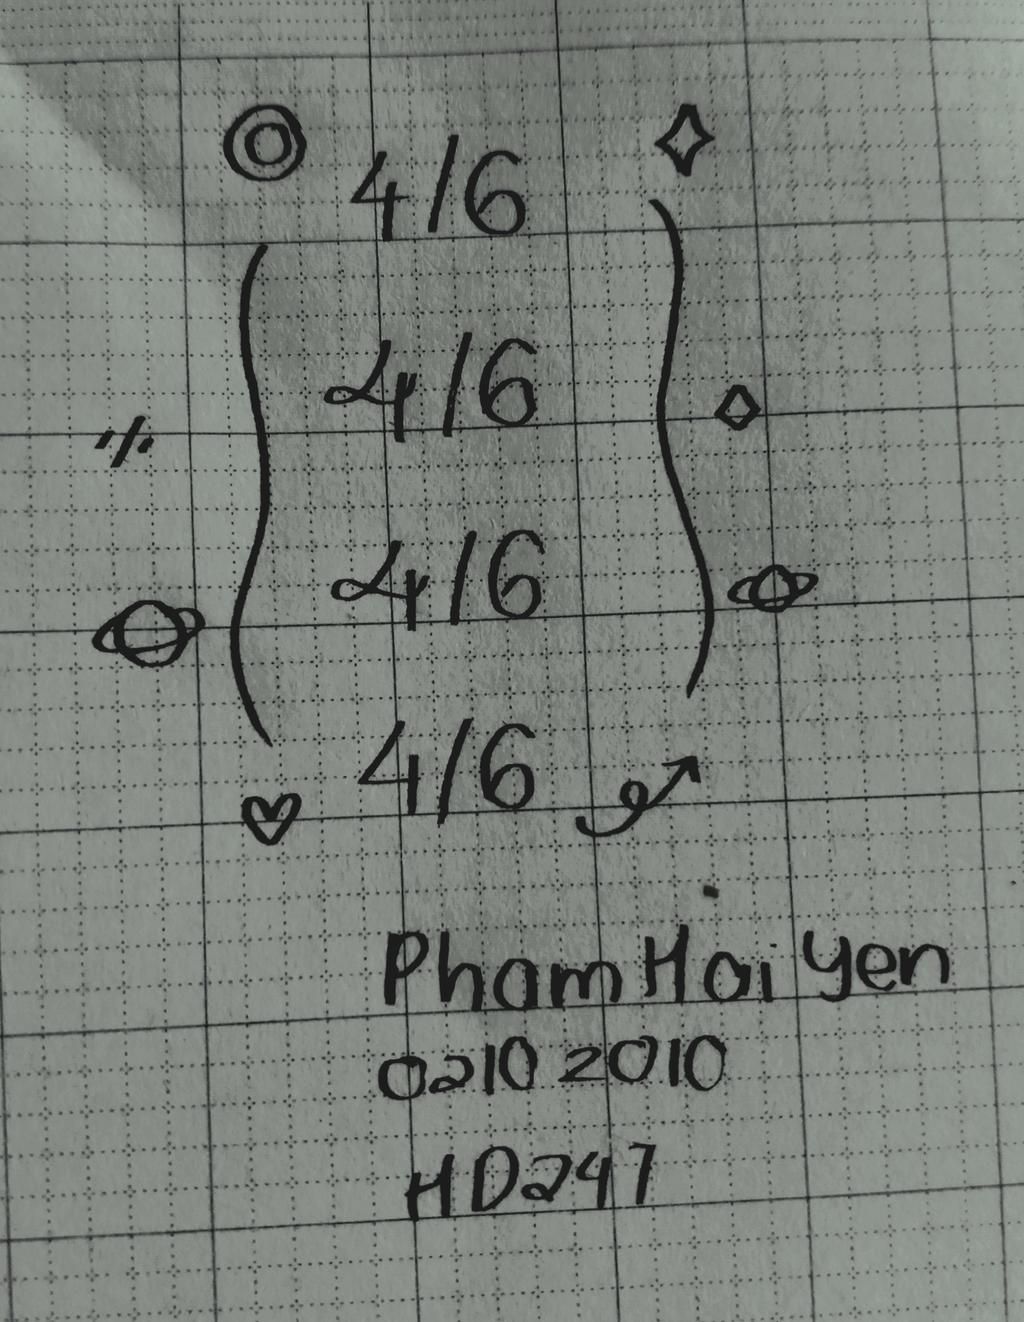 4/6
4/6
4/6
4/6
Pham Hai Yen
0210 2010
HD247